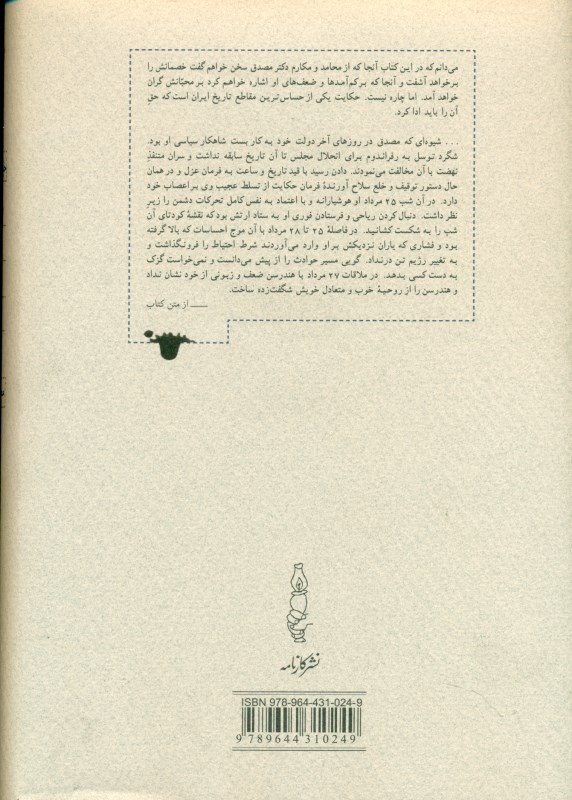 می‌دانم که در این کتاب آنجا که از محامد و مکارم دکتر مصدق سخن خواهم گفت خصمانش را
برخواهد آشفت و آنجا که بر کم‌آمدها و ضعف‌های او اشاره خواهم کرد بر محبّانش گران
خواهد آمد. اما چاره نیست. حکایت یکی از حساس‌ترین مقاطع تاریخ ایران است که حقِ
آن را باید ادا کرد.
... شیوه‌ای که مصدق در روزهای آخر دولت خود به کار بست شاهکار سیاسی او بود.
شگرد توسل به رفراندوم برای انحلال مجلس تا آن تاریخ سابقه نداشت و سران متنفّذ
نهضت با آن مخالفت می‌نمودند. دادن رسید با قید تاریخ و ساعت به فرمان عزل و در همان
حال دستور توقیف و خلع سلاح آورندهٔ فرمان حکایت از تسلط عجیب وی بر اعصاب خود
دارد. در آن شب ۲۵ مرداد او هوشیارانه و با اعتماد به نفس کامل تحرکات دشمن را زیرِ
نظر داشت. دنبال کردن ریاحی و فرستادن فوری او به ستاد ارتش بود که نقشهٔ کودتای آن
شب را به شکست کشانید. در فاصلهٔ ۲۵ تا ۲۸ مرداد با آن موج احساسات که بالا گرفته
بود و فشاری که یاران نزدیکش بر او وارد می‌آوردند شرط احتیاط را فرونگذاشت و
به تغییر رژیم تن درنداد. گویی مسیر حوادث را از پیش می‌دانست و نمی‌خواست گزک
به دست کسی بدهد. در ملاقات ۲۷ مرداد با هندرسن ضعف و زبونی از خود نشان نداد
و هندرسن را از روحیهٔ خوب و متعادل خویش شگفت‌زده ساخت.
ــــ از متن کتاب
نشر کارنامه
ISBN 978-964-431-024-9
9 789644 310249